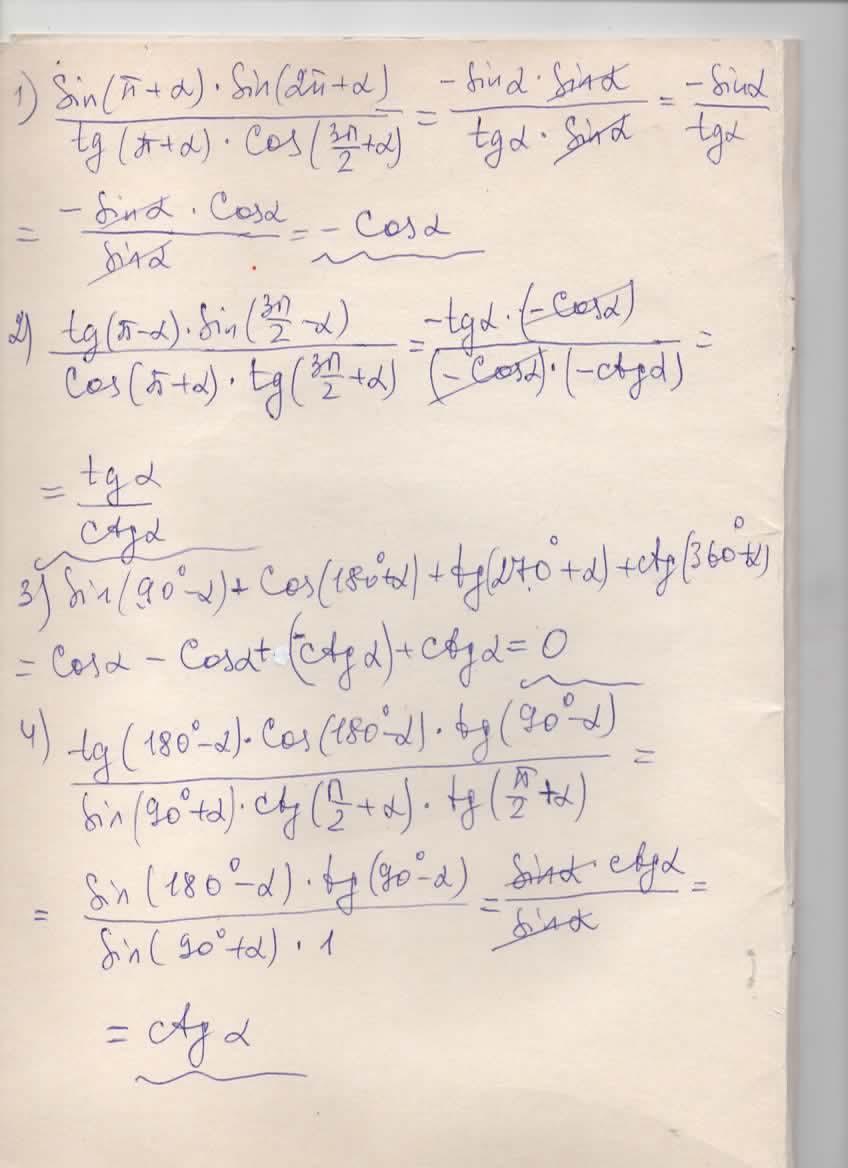 1) sin(π+α)·sin(2π+α) / tg(π+α)·cos(3π/2+α) = -sinα·sinα / tgα·sinα = -sinα / tgα
= -sinα·cosα / sinα = -cosα
2) tg(π-α)·sin(3π/2-α) / cos(π+α)·tg(3π/2+α) = -tgα·(-cosα) / (-cosα)·(-ctgα) =
= tgα / ctgα
3) sin(90°-α)+cos(180°+α)+tg(270°+α)+ctg(360°+α)
= cosα - cosα+(-ctgα)+ctgα=0
4) tg(180°-α)·cos(180°-α)·tg(90°-α) / sin(90°+α)·ctg(π/2+α)·tg(π/2+α) =
= sin(180°-α)·tg(90°-α) / sin(90°+α)·1 = sinα·ctgα / sinα =
= ctgα